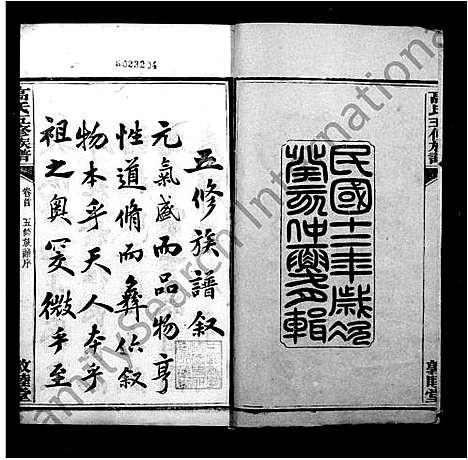 高氏五修族譜
敦睦堂
民國十二年歲次
癸亥仲夏輯
五修族譜叙
元氣盛而品物亨
性道脩而彝倫叙
物本乎天人本乎
祖之奧窔微乎至
高氏五修族譜
卷首 五修族譜序
敦睦堂
FamilySearch International